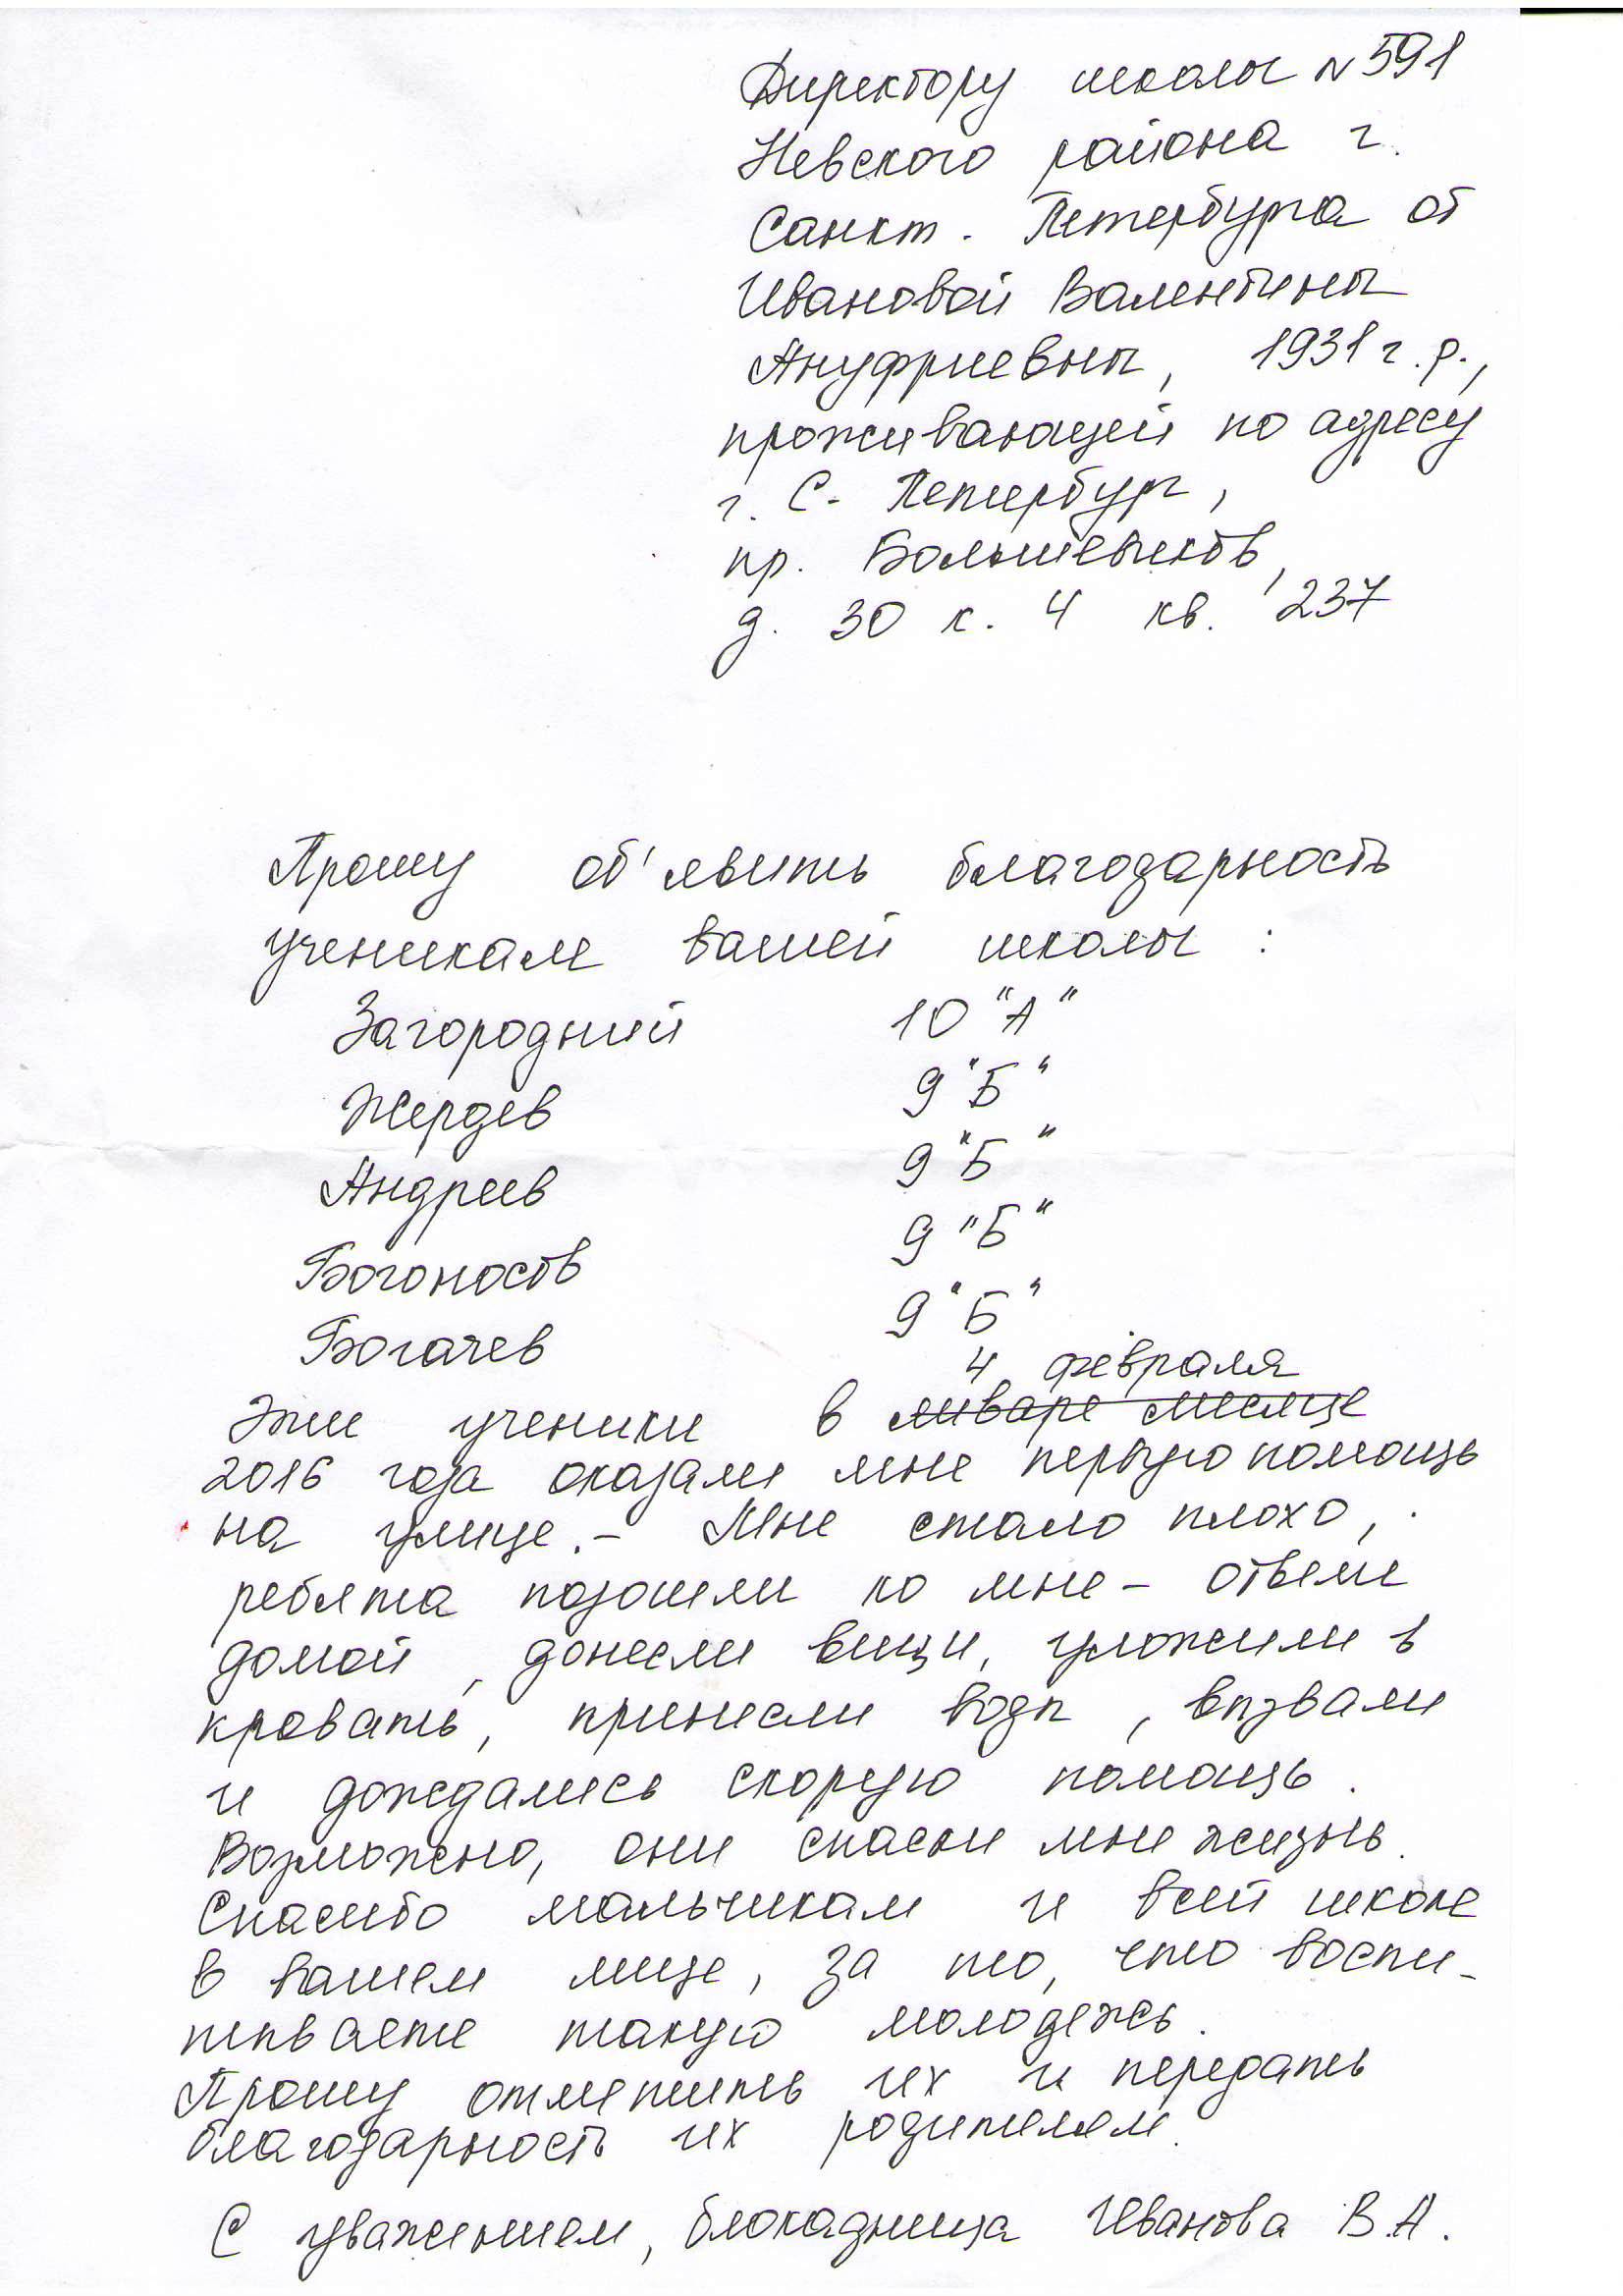 Директору школы N 591
Невского района г.
Санкт-Петербурга от
Ивановой Валентины
Ануфриевны, 1931 г.р.,
проживающей по адресу
г. С-Петербург,
пр. Большевиков,
д. 30 к. 4 кв. 237
Прошу об'явить благодарность
ученикам вашей школы :
Загородний 10 "А"
Жердев 9 "Б"
Андреев 9 "Б"
Богоносов 9 "Б"
Богачев 9 "Б"
4 февраля
Эти ученики в январе месяце
2016 года оказали мне первую помощь
на улице. - Мне стало плохо,
ребята подошли ко мне - отвели
домой, донесли вещи, уложили в
кровать, принесли воды, вызвали
и дождались скорую помощь.
Возможно, они спасли мне жизнь.
Спасибо мальчикам и всей школе
в вашем лице, за то, что воспи-
тываете такую молодежь.
Прошу отметить их и передать
благодарность их родителям.
С уважением, блокадница Иванова В.А.